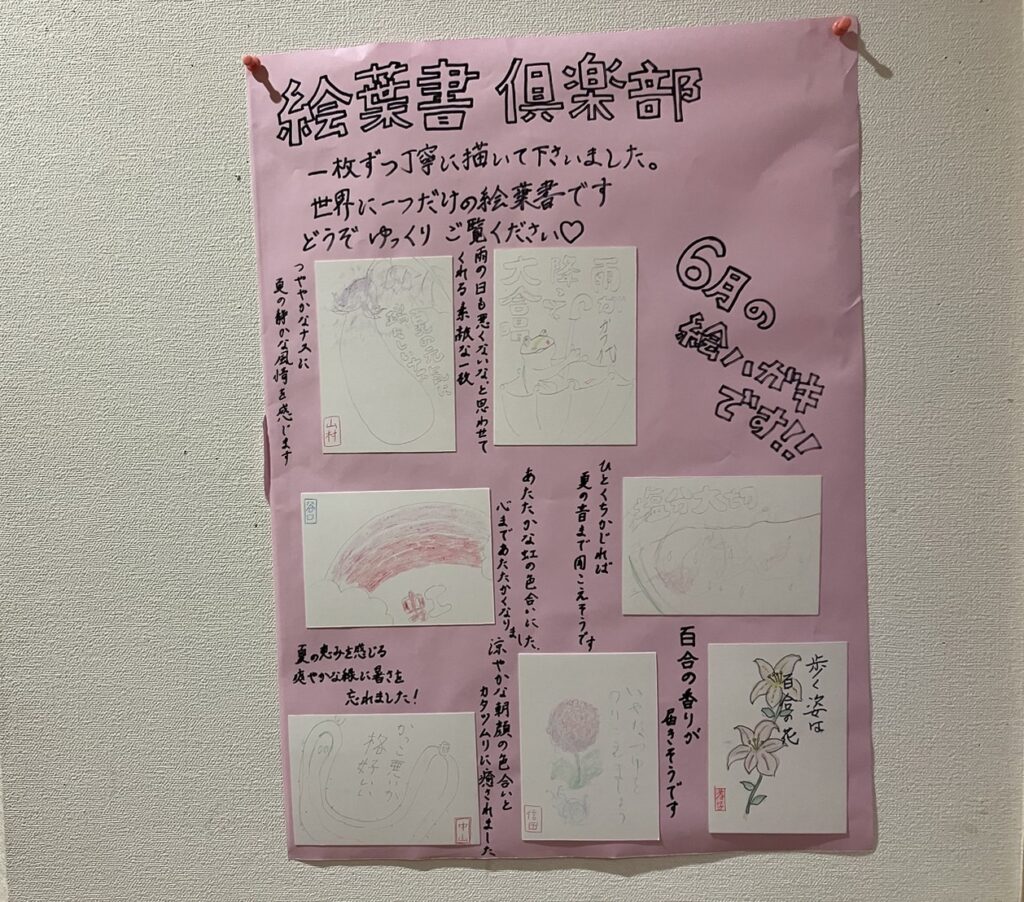 絵葉書 倶楽部
一枚ずつ丁寧に描いて下さいました。
世界に一つだけの絵葉書です
どうぞ ゆっくり ご覧ください♡
6月の
絵ハガキ
です!!
雨が
降るの
大合唱
雨の日も悪くないな、と思わせて
くれる素敵な一枚
山村
つややかなナスに
夏の静かな風情を感じます
塩分大切
ひとくちかじれば
夏の音まで聞こえそうです
あたたかな虹の色合いにした、
心まであたたかくなりました
谷口
虹
歩く姿は
百合の花
百合の香りが
届きそうです
いやなつゆと
のりこえましょう
信田
涼やかな朝顔の色合いと
カタツムリに癒されました
夏の恵みを感じる
爽やかな緑に暑さを
忘れました!
かっこ悪いが
格好いい
中山